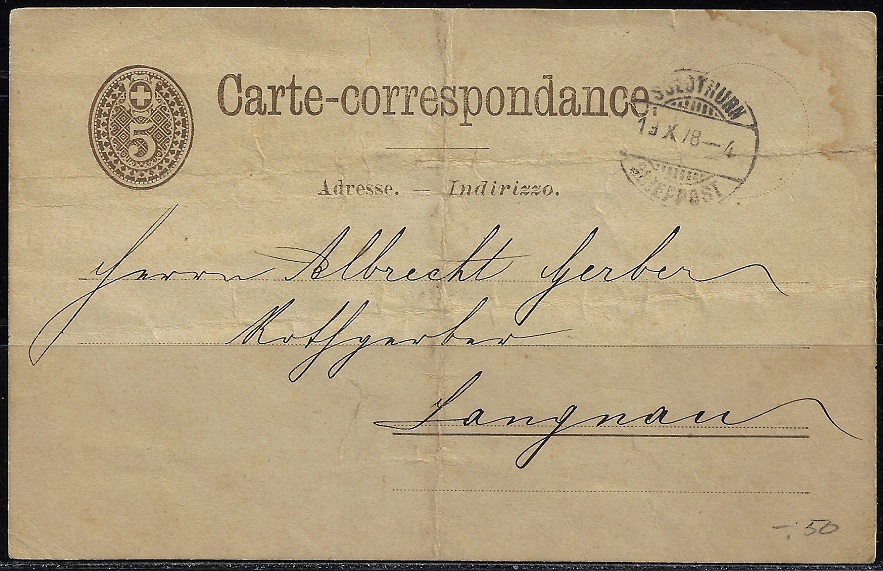 5
Carte-correspondance.
SOLOTHURN
19 X 78—4
BRIEFPOST
Adresse. — Indirizzo.
Herrn Albrecht Gerber
Rothgerber
Langnau
-.50